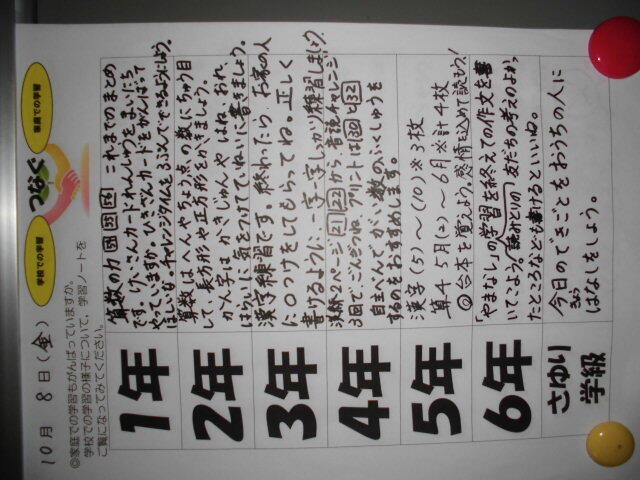 10月 8日(金)
学校での学習
つなぐ
家庭での学習
◎家庭での学習もがんばっていますか。
学校での学習の様子について、学習ノートを
ご覧になってみてください。
1年
算数の力 これまでのまとめ
です。けいさんカードれんしゅうをまいにち
やっていますか。ひきさんカードをがんばって
ほしいな。チャレンジタイムを3ぷんでできるようにしよう。
2年
算数はへんやちょう点の数にちゅう目
して、長方形や正方形をかきましょう。
かん字はかきじゅんや はね、おれ、
はらいに気をつけてていねいに書きましょう。
3年
漢字練習です。終わったら、お家の人
に○つけをしてもらってね。正しく
書けるように、一字一字しっかり練習しましょう。
4年
のページ 21 22 から 音読チャレンジ
3回で、ごんぎつね、プリントは30と32
自主べんでがい数のふくしゅうを
するのをおすすめします。
5年
漢字(5)～(10)※3枚
算4 5月(2)～6月※計4枚
◎台本を覚えよう。感情込めて読もう!
6年
「やまなし」の学習を終えての作文を書
いてこよう。読みとりの友だちの考えのよかっ
たところなども書けるといいね。
さゆり
学級
今日のできごとをおうちの人に
はなしをしよう。